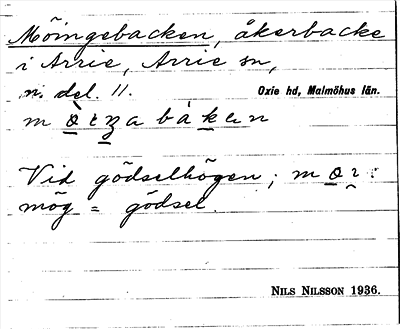 Möingebacken, åkerbacke
i Arrie, Arrie sn,
n. del. 11. Oxie hd, Malmöhus län.
Vid gödselhögen;
mög = gödsel.
NILS NILSSON 1936.